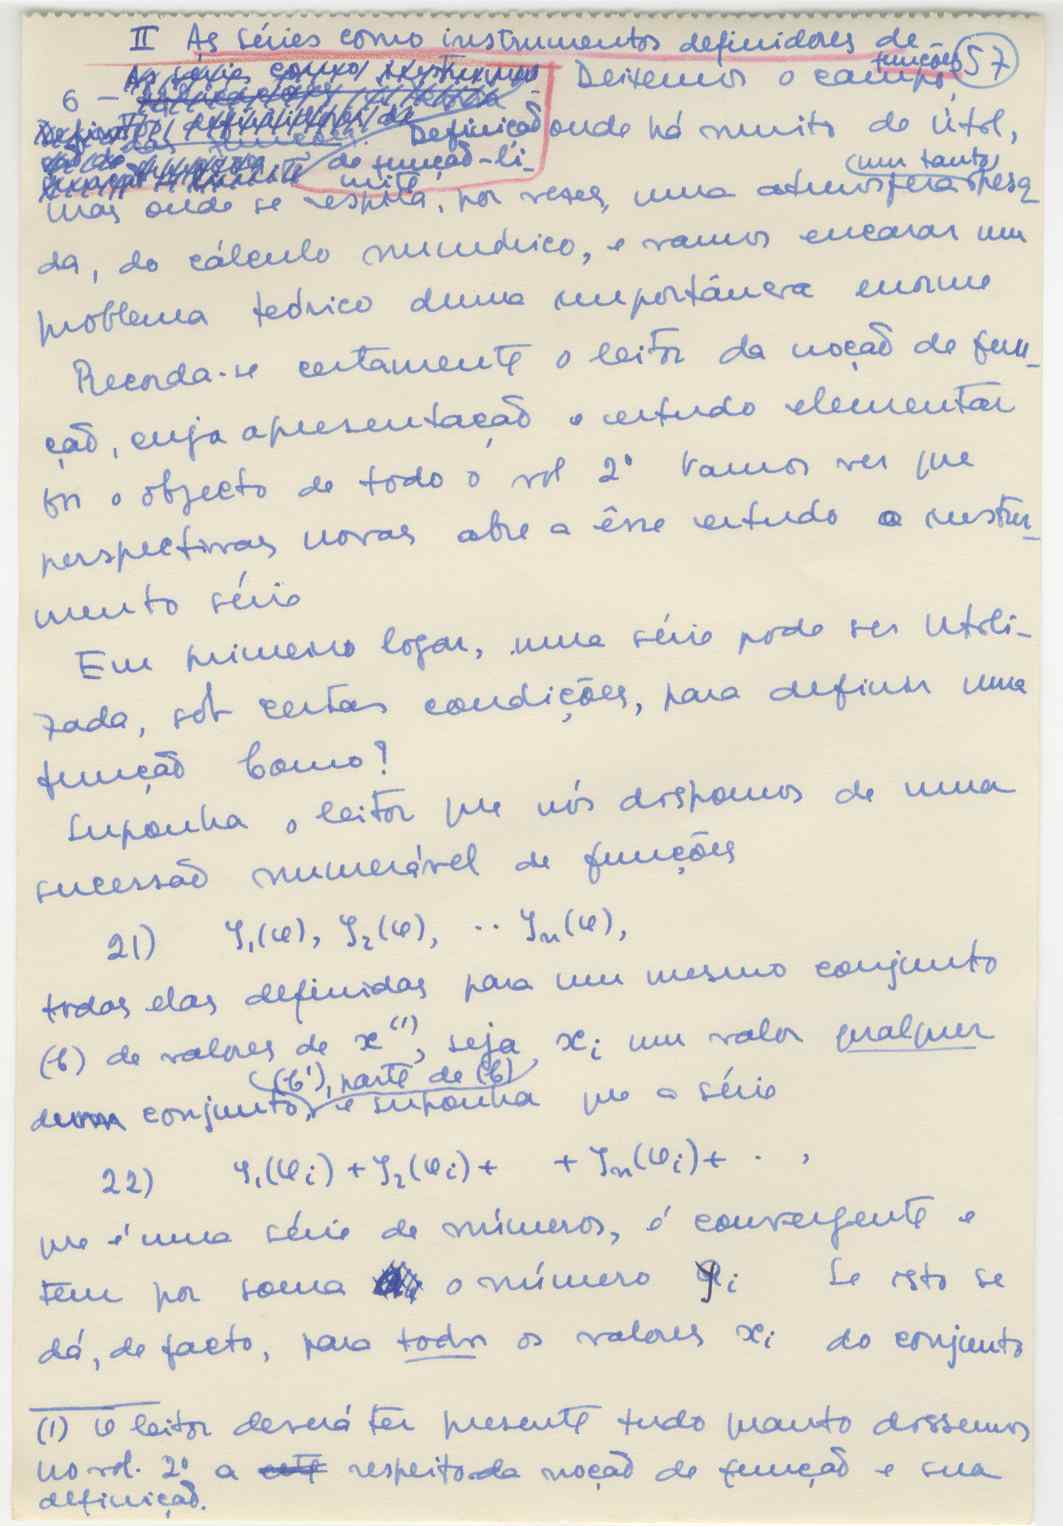 II As séries como instrumentos definidores de
funções
57
6 - Definição
de função-li-
mite
Deixemos o campo,
onde há muito de útil,
(um tanto)
mas onde se respira, por vezes, uma atmosfera pesa
da, do cálculo numérico, e vamos encarar um
problema teórico duma importância enorme
Recorda-se certamente o leitor da noção de fun-
ção, cuja apresentação e estudo elementar
foi o objecto de todo o vol 2º Vamos ver que
perspectivas novas abre a êsse estudo o instru-
mento série
Em primeiro logar, uma série pode ser utili-
zada, sob certas condições, para definir uma
função Como?
Suponha o leitor que nós dispomos de uma
sucessão numerável de funções
21) y₁(x), y₂(x), ·· yₙ(x),
todas elas definidas para um mesmo conjunto
(C) de valores de x⁽¹⁾, seja xᵢ um valor qualquer
(C'), parte de (C)
dum conjunto, e suponha que a série
22) y₁(xᵢ) + y₂(xᵢ) + + yₙ(xᵢ) + · ,
que é uma série de números, é convergente e
tem por soma o número yᵢ Se isto se
dá, de facto, para todos os valores xᵢ do conjunto
(1) O leitor deverá ter presente tudo quanto dissemos
no vol. 2º a respeito da noção de função e sua
definição.